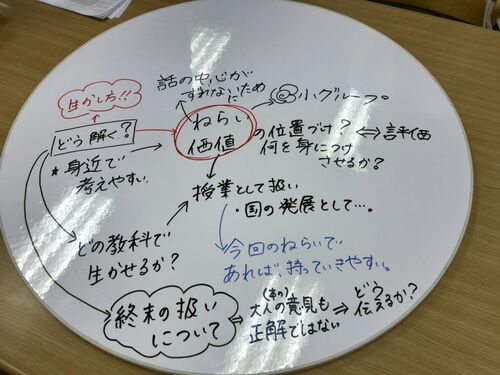 生かし方!!
話の中心が
ずれないために
小グループ
どう解く?
ねらい
価値
の位置づけ? ⇔ 評価
何を身につけ
させるか?
★身近で
考えやすい.
授業として扱い
・国の発展として…。
どの教科で
生がせるか?
今回のねらいで
あれば、持っていきやすい。
終末の扱い
について
(本の)
⇒ 大人の意見も
正解ではない
⇒ どう
伝えるか?